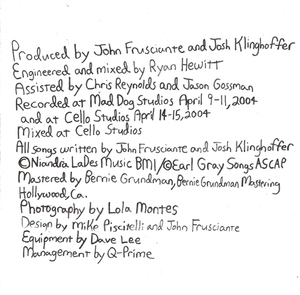 Produced by John Frusciante and Josh Klinghoffer
Engineered and mixed by Ryan Hewitt
Assisted by Chris Reynolds and Jason Gossman
Recorded at Mad Dog Studios April 9-11, 2004
and at Cello Studios April 14-15, 2004
Mixed at Cello Studios
All songs written by John Frusciante and Josh Klinghoffer
©Niandra LaDes Music BMI/©Earl Gray Songs ASCAP
Mastered by Bernie Grundman, Bernie Grundman Mastering
Hollywood, Ca.
Photography by Lola Montes
Design by Mike Piscitelli and John Frusciante
Equipment by Dave Lee
Management by Q-Prime